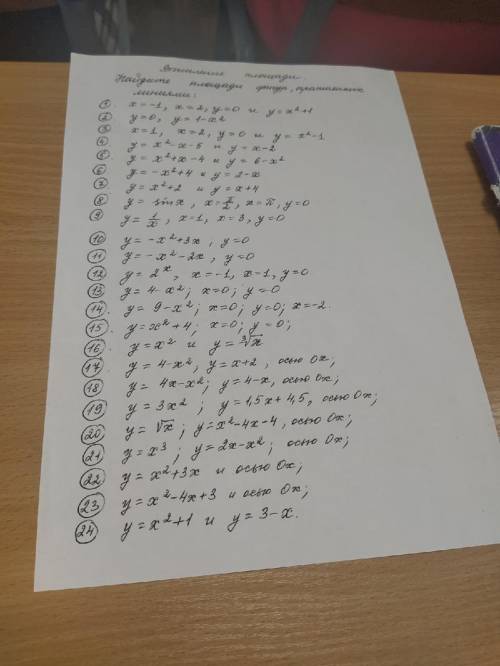 Вычисление площади.
Найдите площади фигур, ограниченных
линиями:
① x = -1, x = 2, y = 0 и y = x² + 1
② y = 0, y = 1 - x²
③ x = 1, x = 2, y = 0 и y = x² - 1
④ y = x² - x - 5 и y = x - 2
⑤ y = x² + x - 4 и y = 6 - x²
⑥ y = -x² + 4 и y = 2 - x
⑦ y = x² + 2 и y = x + 4
⑧ y = sin x, x = π/2, x = π, y = 0
⑨ y = 1/x, x = 1, x = 3, y = 0
⑩ y = -x² + 3x, y = 0
⑪ y = -x² - 2x, y = 0
⑫ y = 2ˣ, x = -1, x = 1, y = 0
⑬ y = 4 - x²; x = 0; y = 0
⑭ y = 9 - x²; x = 0; y = 0; x = -2.
⑮ y = x² + 4; x = 0; y = 0;
⑯ y = x² и y = ∛x
⑰ y = 4 - x², y = x + 2, осью Ox;
⑱ y = 4x - x²; y = 4 - x, осью Ox;
⑲ y = 3x²; y = 1,5x + 4,5, осью Ox;
⑳ y = √x; y = x² - 4x - 4, осью Ox;
㉑ y = x³; y = 2x - x²; осью Ox;
㉒ y = x² + 3x и осью Ox;
㉓ y = x² - 4x + 3 и осью Ox;
㉔ y = x² + 1 и y = 3 - x.